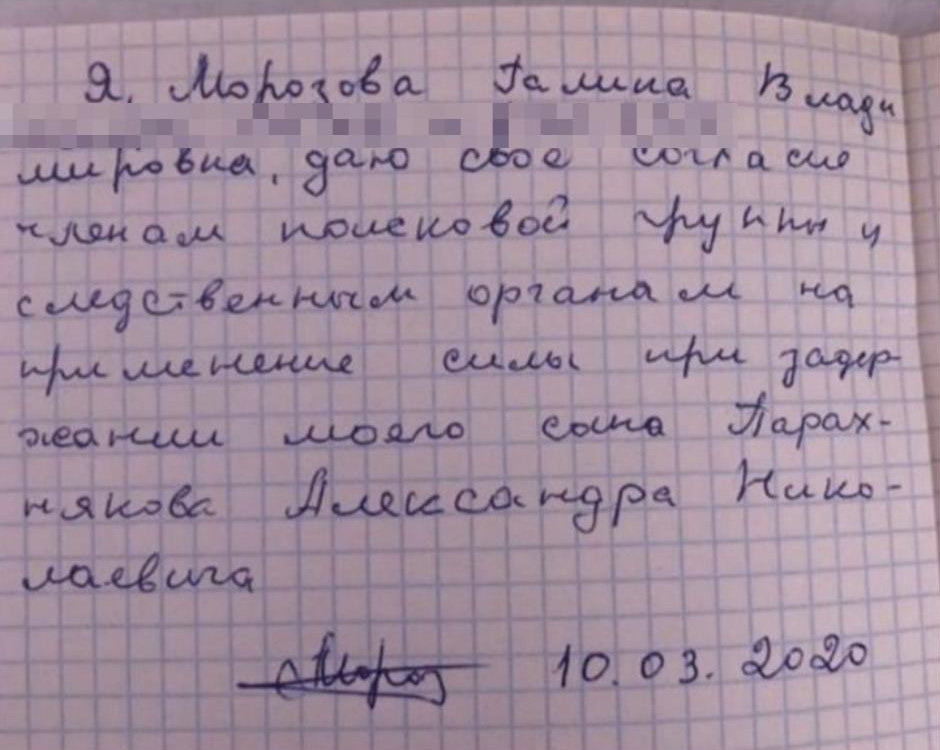 Я, Морозова Галина Влади
мировна, даю свое согласие
членам поисковой группы и
следственным органам на
применение силы при задер-
жании моего сына Парах-
някова Александра Нико-
лаевича
Мороз 10.03.2020